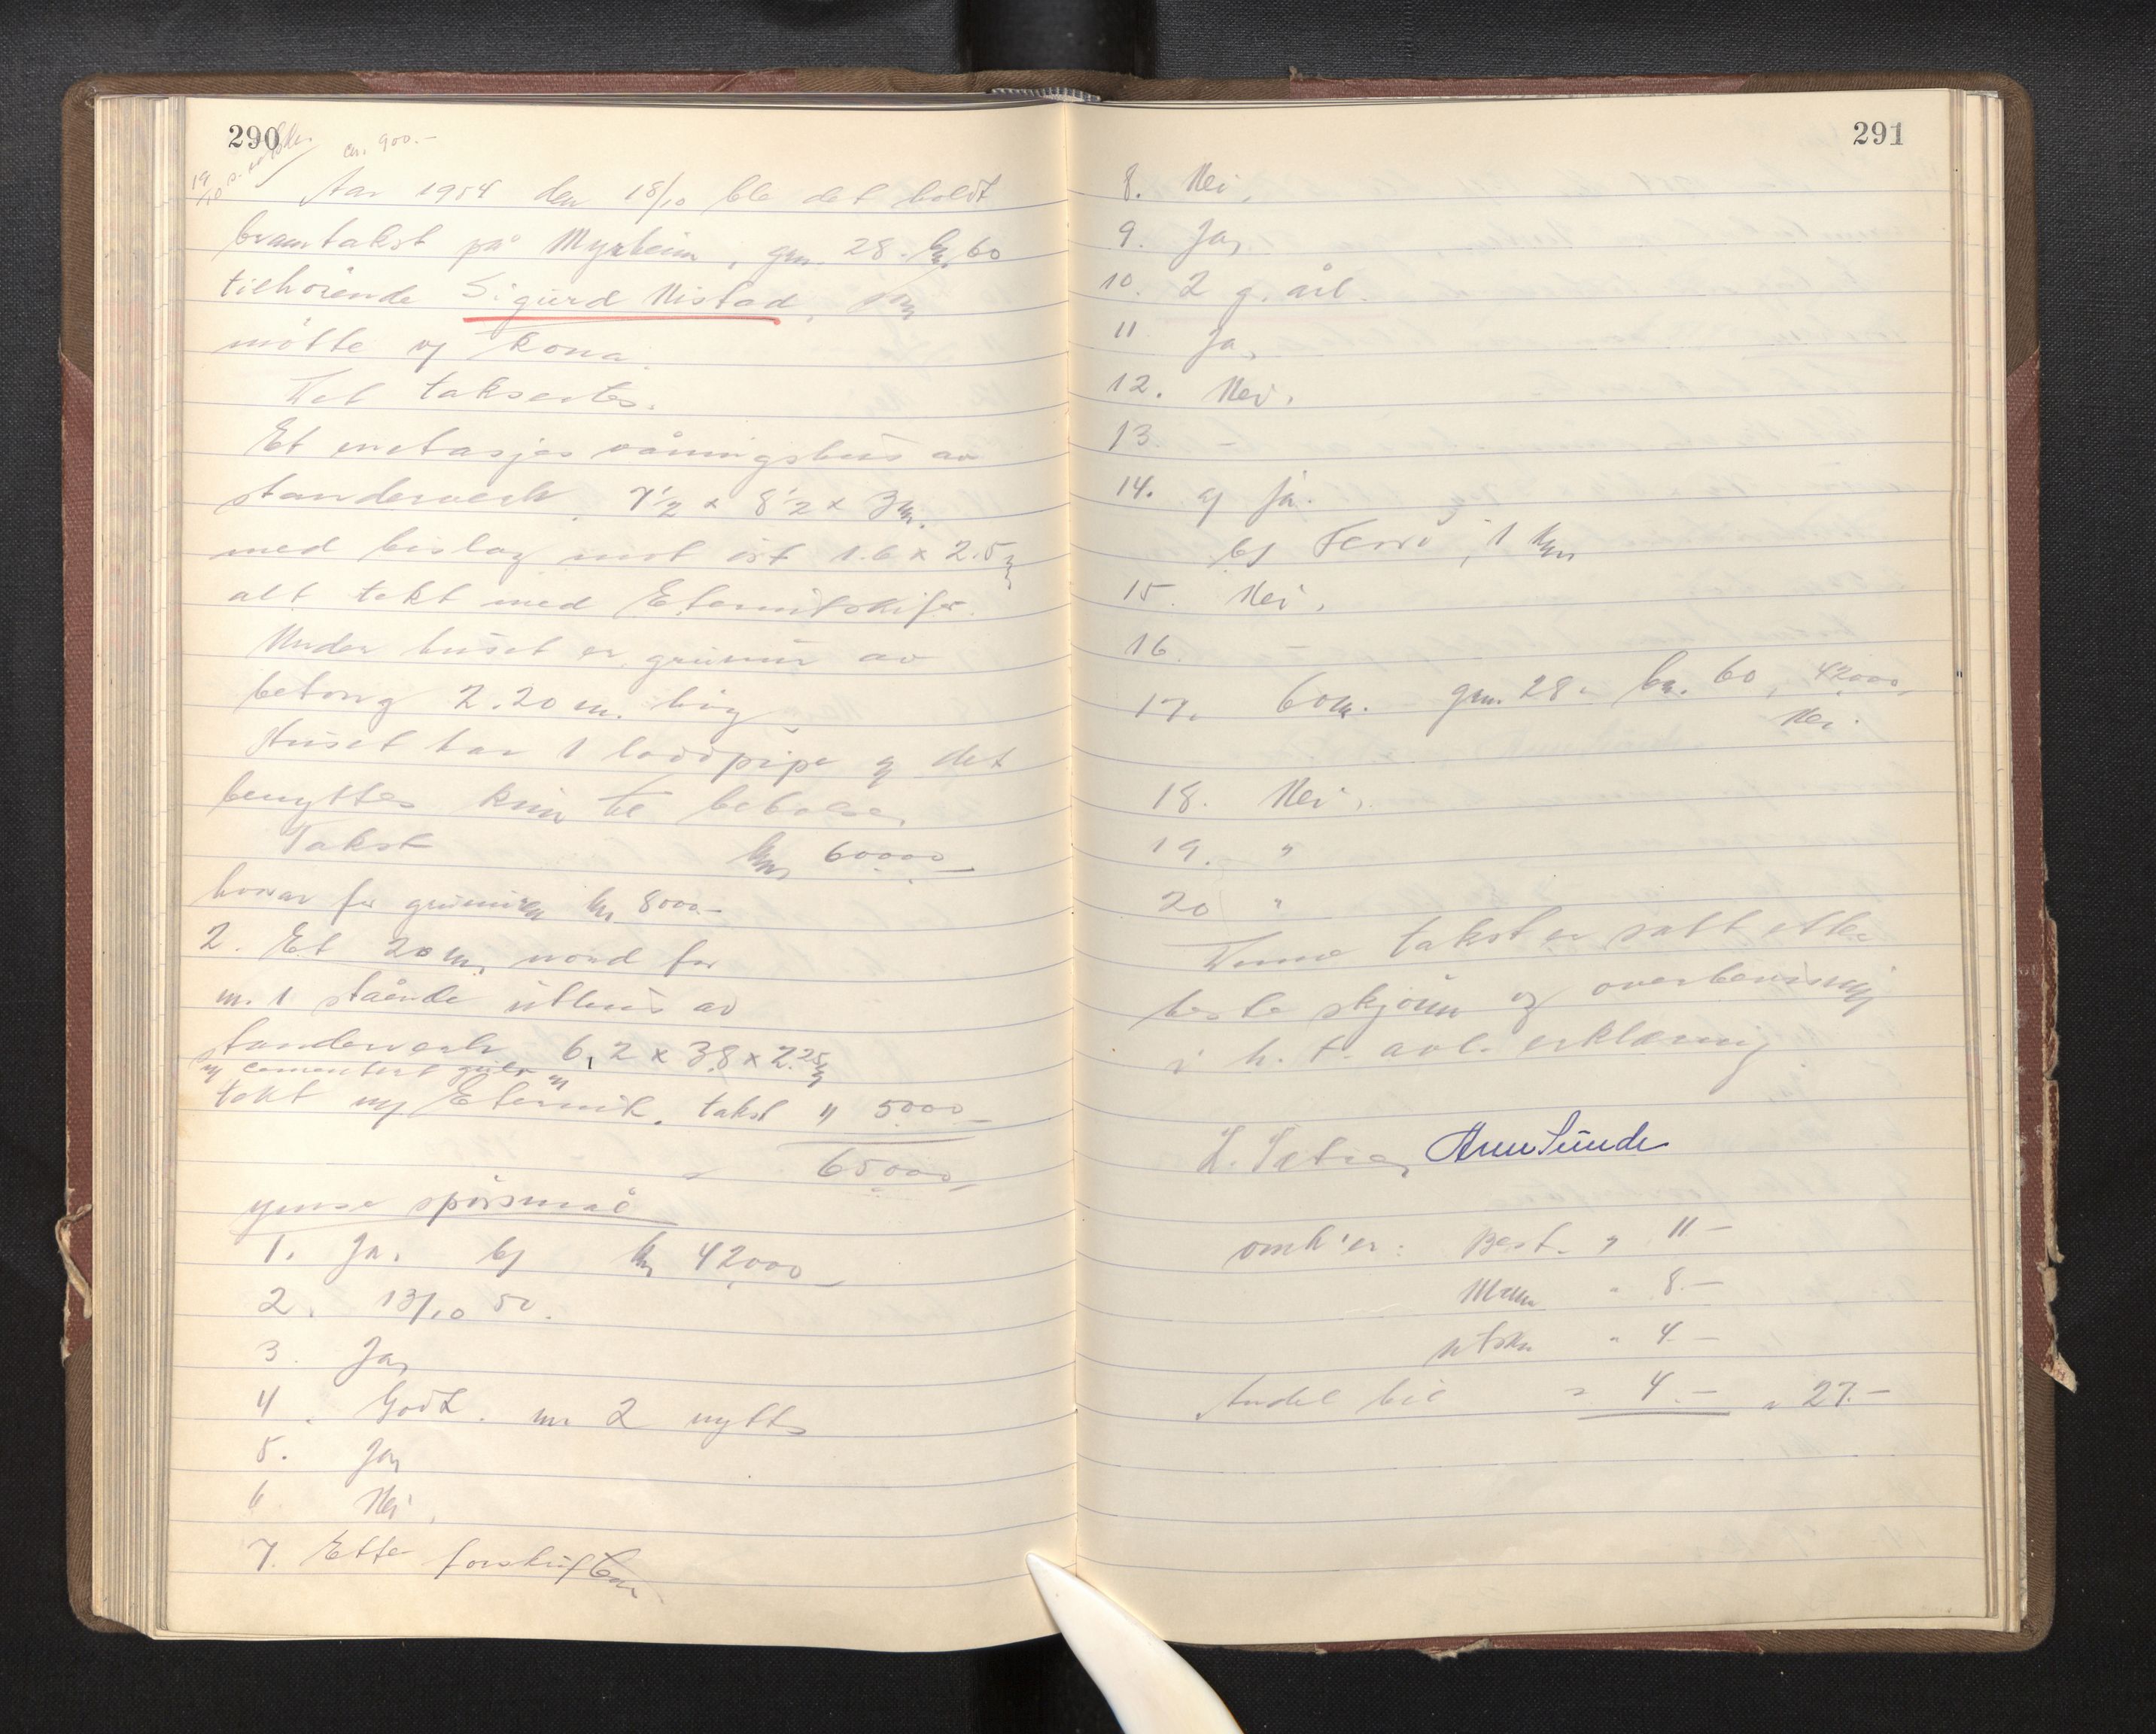 290
19/10
kr. 900.-
Aar 1954 den 18/10 ble det holdt
branntakst på Myrheim, gnr. 28. br. 60
tilhørende Sigurd Nistad, som
møtte og kona.
Det taksertes.
Et enetasjes våningshus av
standerverk. 7½ x 8½ x 3 m.
med bislag mot øst 1.6 x 2.5 m
alt tekt med Eternitskifer.
Under huset er grunnur av
betong 2.20 m. høg
Huset har 1 loddpipe og det
benyttes kun til beboelse.
Takst kr. 60000-
hvorav for grunnuren kr. 8000.-
2. Et 20 m. nord for
nr. 1 stående uthus av
standerverk 6,2 x 3.8 x 2.25 m
m/ cementert gulv
tekt m/ Eternit. takst " 5000-
65000-
ymse spørsmål
1. Ja. b/ kr. 42000-
2. 13/10 50.
3. Ja,
4. Godt. nr. 2 nytt
5. Ja,
6 Nei.
7. Etter forskriftene
291
8. Nei.
9. Ja,
10. 2 g. årl.
11 Ja,
12. Nei.
13. -
14. a/ ja.
b/ Førde, 1 km
15. Nei.
16. -
17. 60 m. gnr. 28. br. 60, 42000-
Nei.
18. Nei.
19. "
20 "
Denne takst er satt etter
beste skjønn og overbevisning
i h. t. avl. erklæring
L. Sætre, Arne Sunde
omk'er: Best. " 11-
Mann " 8.-
utskr " 4.-
Andel bil " 4.- " 27.-